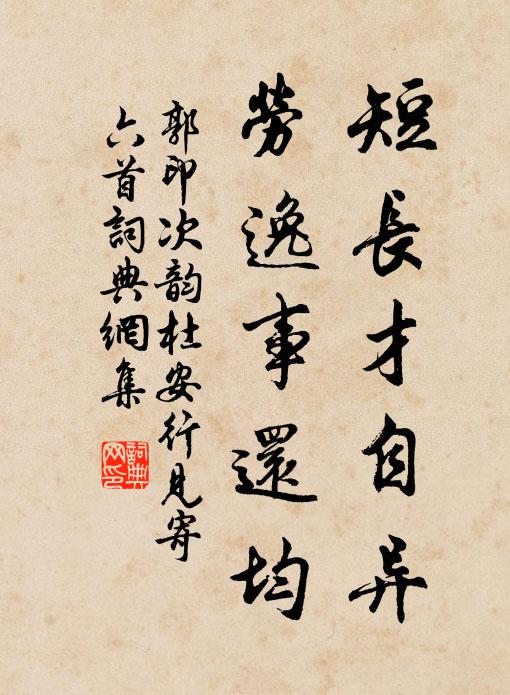 短長才自异
勞逸事還均
郭印次韵杜安行見寄
六首詞典網集
詞典
网印